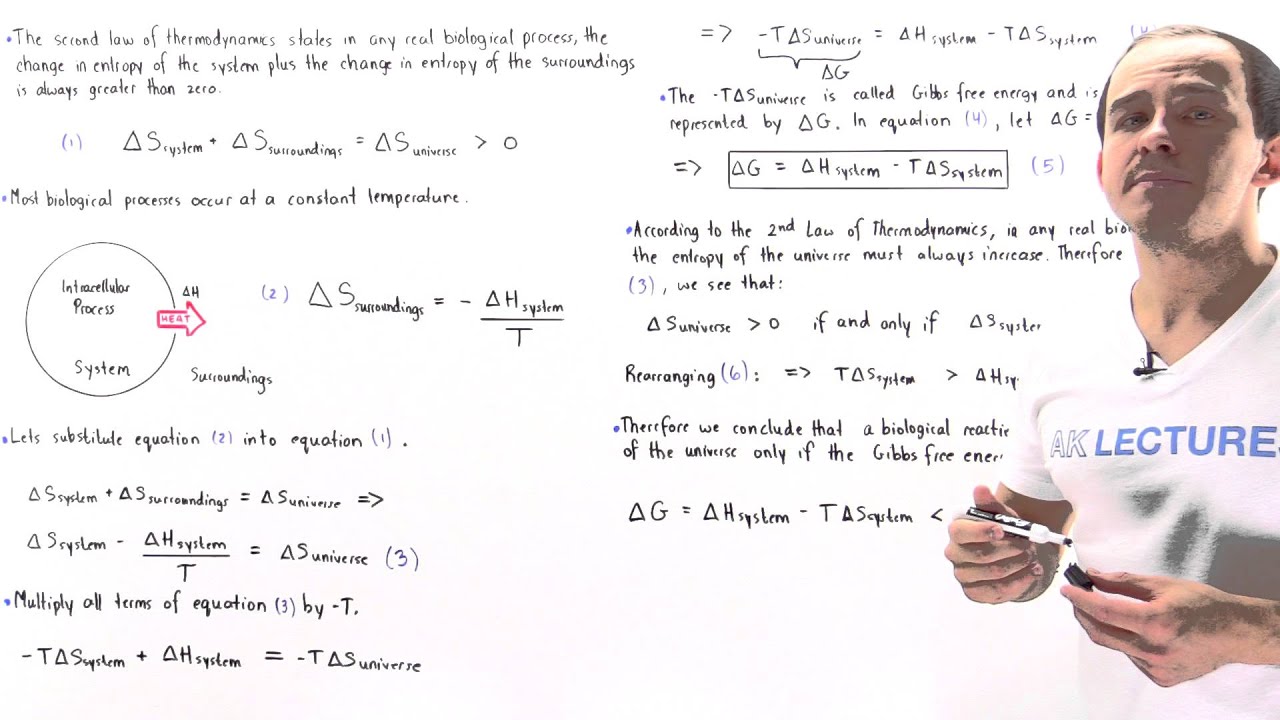 •The second law of thermodynamics states in any real biological process, the
change in entropy of the system plus the change in entropy of the surroundings
is always greater than zero.
(1) ΔSsystem + ΔSsurroundings = ΔSuniverse > 0
•Most biological processes occur at a constant temperature.
Intracellular
Process
ΔH
HEAT
System
Surroundings
(2) ΔSsurroundings = - ΔHsystem
T
•Lets substitute equation (2) into equation (1).
ΔSsystem + ΔSsurroundings = ΔSuniverse =>
ΔSsystem - ΔHsystem = ΔSuniverse (3)
T
•Multiply all terms of equation (3) by -T.
-TΔSsystem + ΔHsystem = -TΔSuniverse
=> -TΔSuniverse = ΔHsystem - TΔSsystem
ΔG
•The -TΔSuniverse is called Gibbs free energy and is
represented by ΔG. In equation (4), let ΔG =
=> ΔG = ΔHsystem - TΔSsystem (5)
•According to the 2nd Law of Thermodynamics, in any real
the entropy of the universe must always increase. Therefore
(3), we see that:
ΔSuniverse > 0 if and only if
Rearranging (6): => TΔSsystem >
•Therefore we conclude that a biological
of the universe only if the Gibbs free
ΔG = ΔHsystem - TΔSsystem <
AK LECTURES